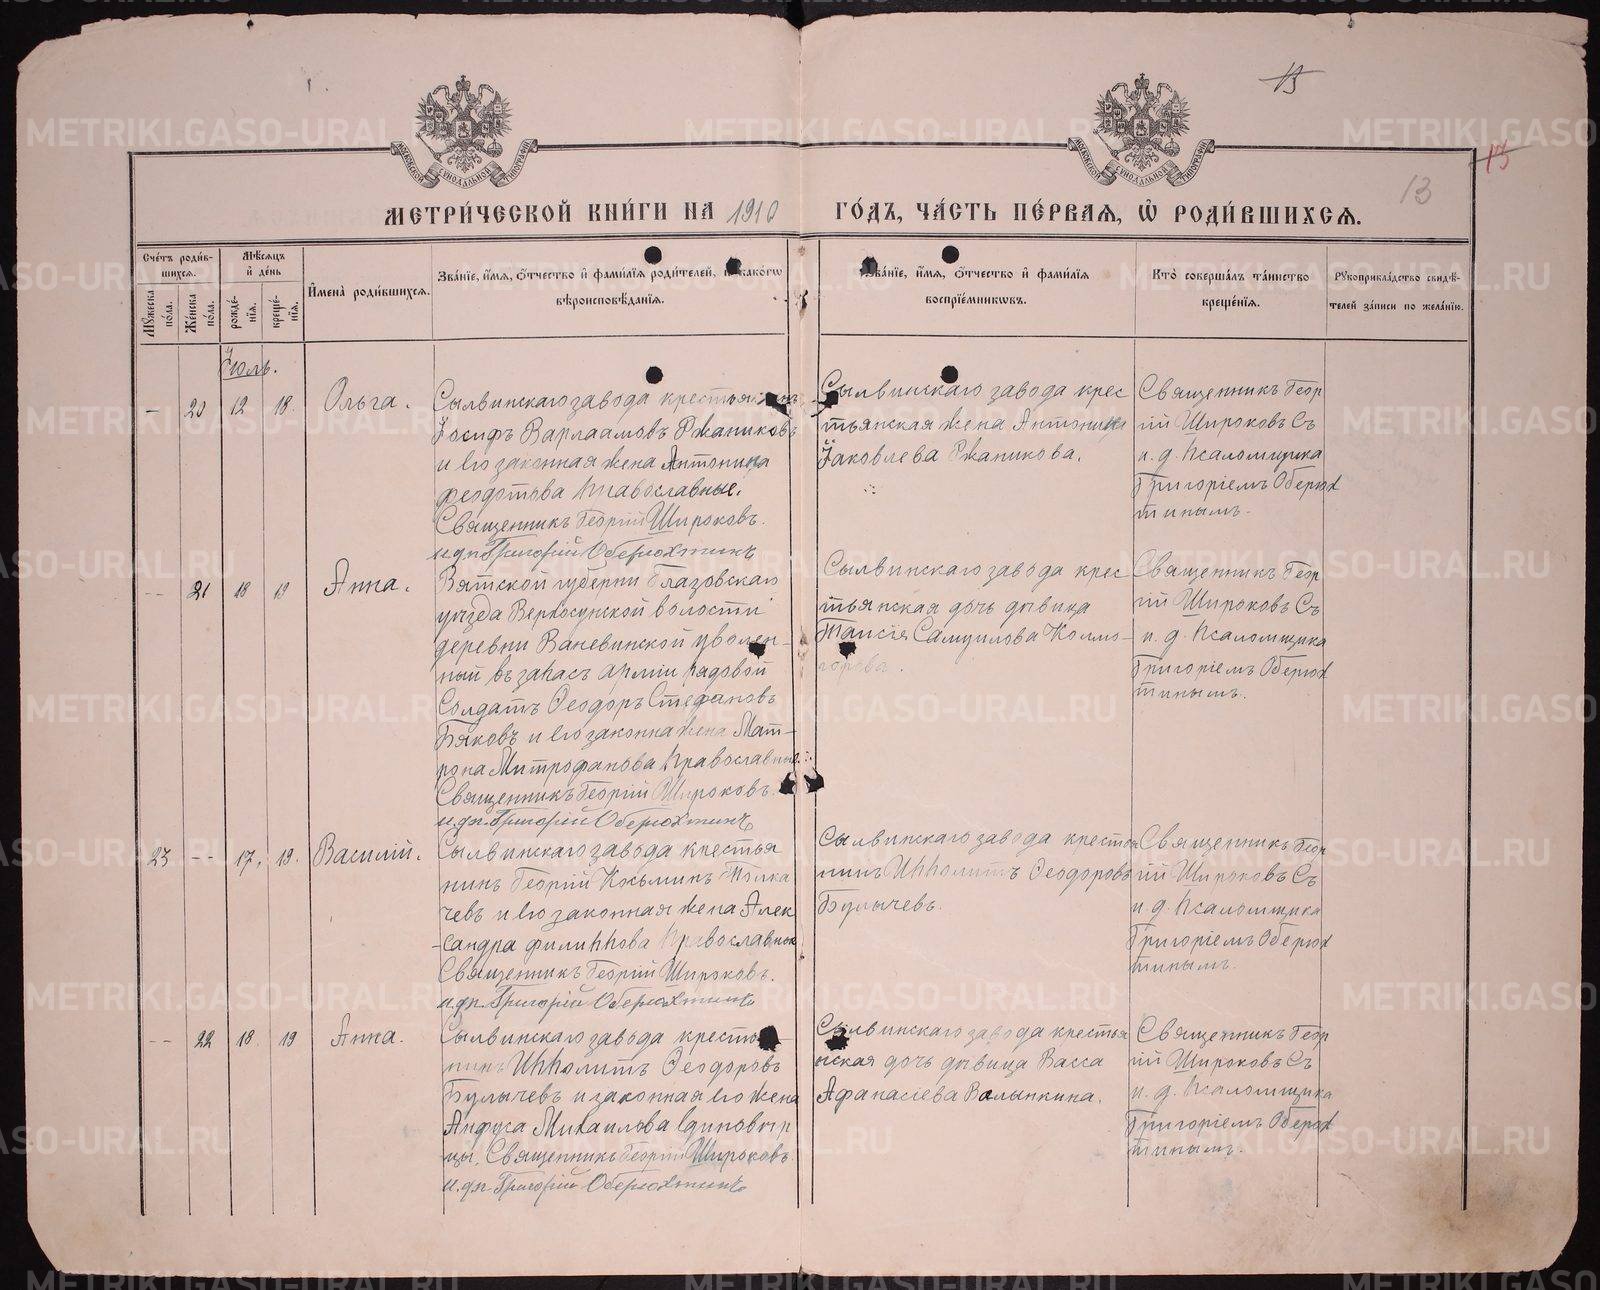 13
13
13
МОСКОВСКОЙ СѴНОДАЛЬНОЙ ТИПОГРАФІИ
МОСКОВСКОЙ СѴНОДАЛЬНОЙ ТИПОГРАФІИ
МЕТРИ́ЧЕСКОЙ КНИ́ГИ НА 1910 ГО́ДЪ, ЧА́СТЬ ПЕ́РВАѦ, Ѡ҆ РОДИ́ВШИХСѦ.
Сче́тъ роди́в-
шихсѧ.
Мꙋ́жеска по́ла.
Же́нска по́ла.
Мѣ́сѧцъ
и҆ де́нь
рожде́-
нїѧ.
креще́-
нїѧ.
И҆мена̀ роди́вшихсѧ.
Зва́нїе, и҆́мѧ, ѻ҆́тчество и҆ фами́лїѧ роди́телей, и҆ како́гѡ
вѣроисповѣ́данїѧ.
Зва́нїе, и҆́мѧ, ѻ҆́тчество и҆ фами́лїѧ
воспрїе́мникѡвъ.
Кто̀ соверша́лъ та́инство
креще́нїѧ.
Рꙋкоприкла́дство свидѣ́-
телей за́писи по жела́нїю.
Іюль.
— 20 12 18. Ольга.
Сылвинскаго завода крестьянинъ
Іосифъ Варлаамовъ Ржаниковъ
и его законная жена Антонина
Федотова православные.
Священникъ Георгій Широковъ.
и.д.п. Григорій Оберюхтинъ
Сылвинскаго завода крес
тьянская жена Антонина
Іаковлева Ржаникова.
Священникъ Геор
гій Широковъ Съ
и. д. Псаломщика
Григоріемъ Оберюх
тинымъ.
-- 21 18 19 Анна.
Вятской губерни Глазовскаго
уѣзда Верхосунской волости
деревни Ваневинской уволен-
ный въ запасъ арміи рядовой
Солдатъ Ѳеодоръ Стефановъ
Бяковъ и его законна жена Мат-
рона Митрофанова православные
Священникъ Георгій Широковъ.
и.д.п. Григорій Оберюхтинъ
Сылвинскаго завода крес
тьянская дочь дѣвица
Таисія Самуилова Колмо-
горова.
Священникъ Геор
гій Широковъ Съ
и. д. Псаломщика
Григоріемъ Оберюх
тинымъ.
23 -- 17. 19. Василій.
Сылвинскаго завода крестья
нинъ Георгій Козьминъ Толка
чевъ и его законная жена Алек
-сандра Филиппова православные
Священникъ Георгій Широковъ.
и.д.п. Григорій Оберюхтинъ
Сылвинскаго завода крестья
нинъ Ипполитъ Ѳеодоровъ
Булычевъ.
Священникъ Геор
гій Широковъ Съ
и д. Псаломщика
Григоріемъ Оберюх
тинымъ.
-- 22 18. 19 Анна.
Сылвинскаго завода крестья-
нинъ Ипполитъ Ѳеодоровъ
Булычевъ и законная его жена
Анфуса Михаилова единовѣр
цы. Священникъ Георгій Широковъ.
и.д.п. Григорій Оберюхтинъ
Сылвинскаго завода крестья
нская дочь дѣвица Васса
Афанасіева Валынкина.
Священникъ Геор
гій Широковъ Съ
и. д. Псаломщика
Григоріемъ Оберюх
тинымъ.
METRIKI.GASO-URAL.RU